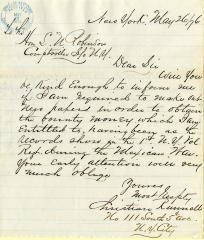 New York, May 26/76
Hon. L. W. Robinson
Comptroller S. of N.Y.
Dear Sir
Will You
be Kind Enough to inform me
if I am required to make out
new papers in order to obtain
the bounty money which I am
Entitled to, having been as the
records show in the 1st N.Y. Vol
Regt. during the Mexican War.
Your early attention will very
much oblige
Yours
most Respty
Christian
No 111 South 5th Ave.
N.Y. City